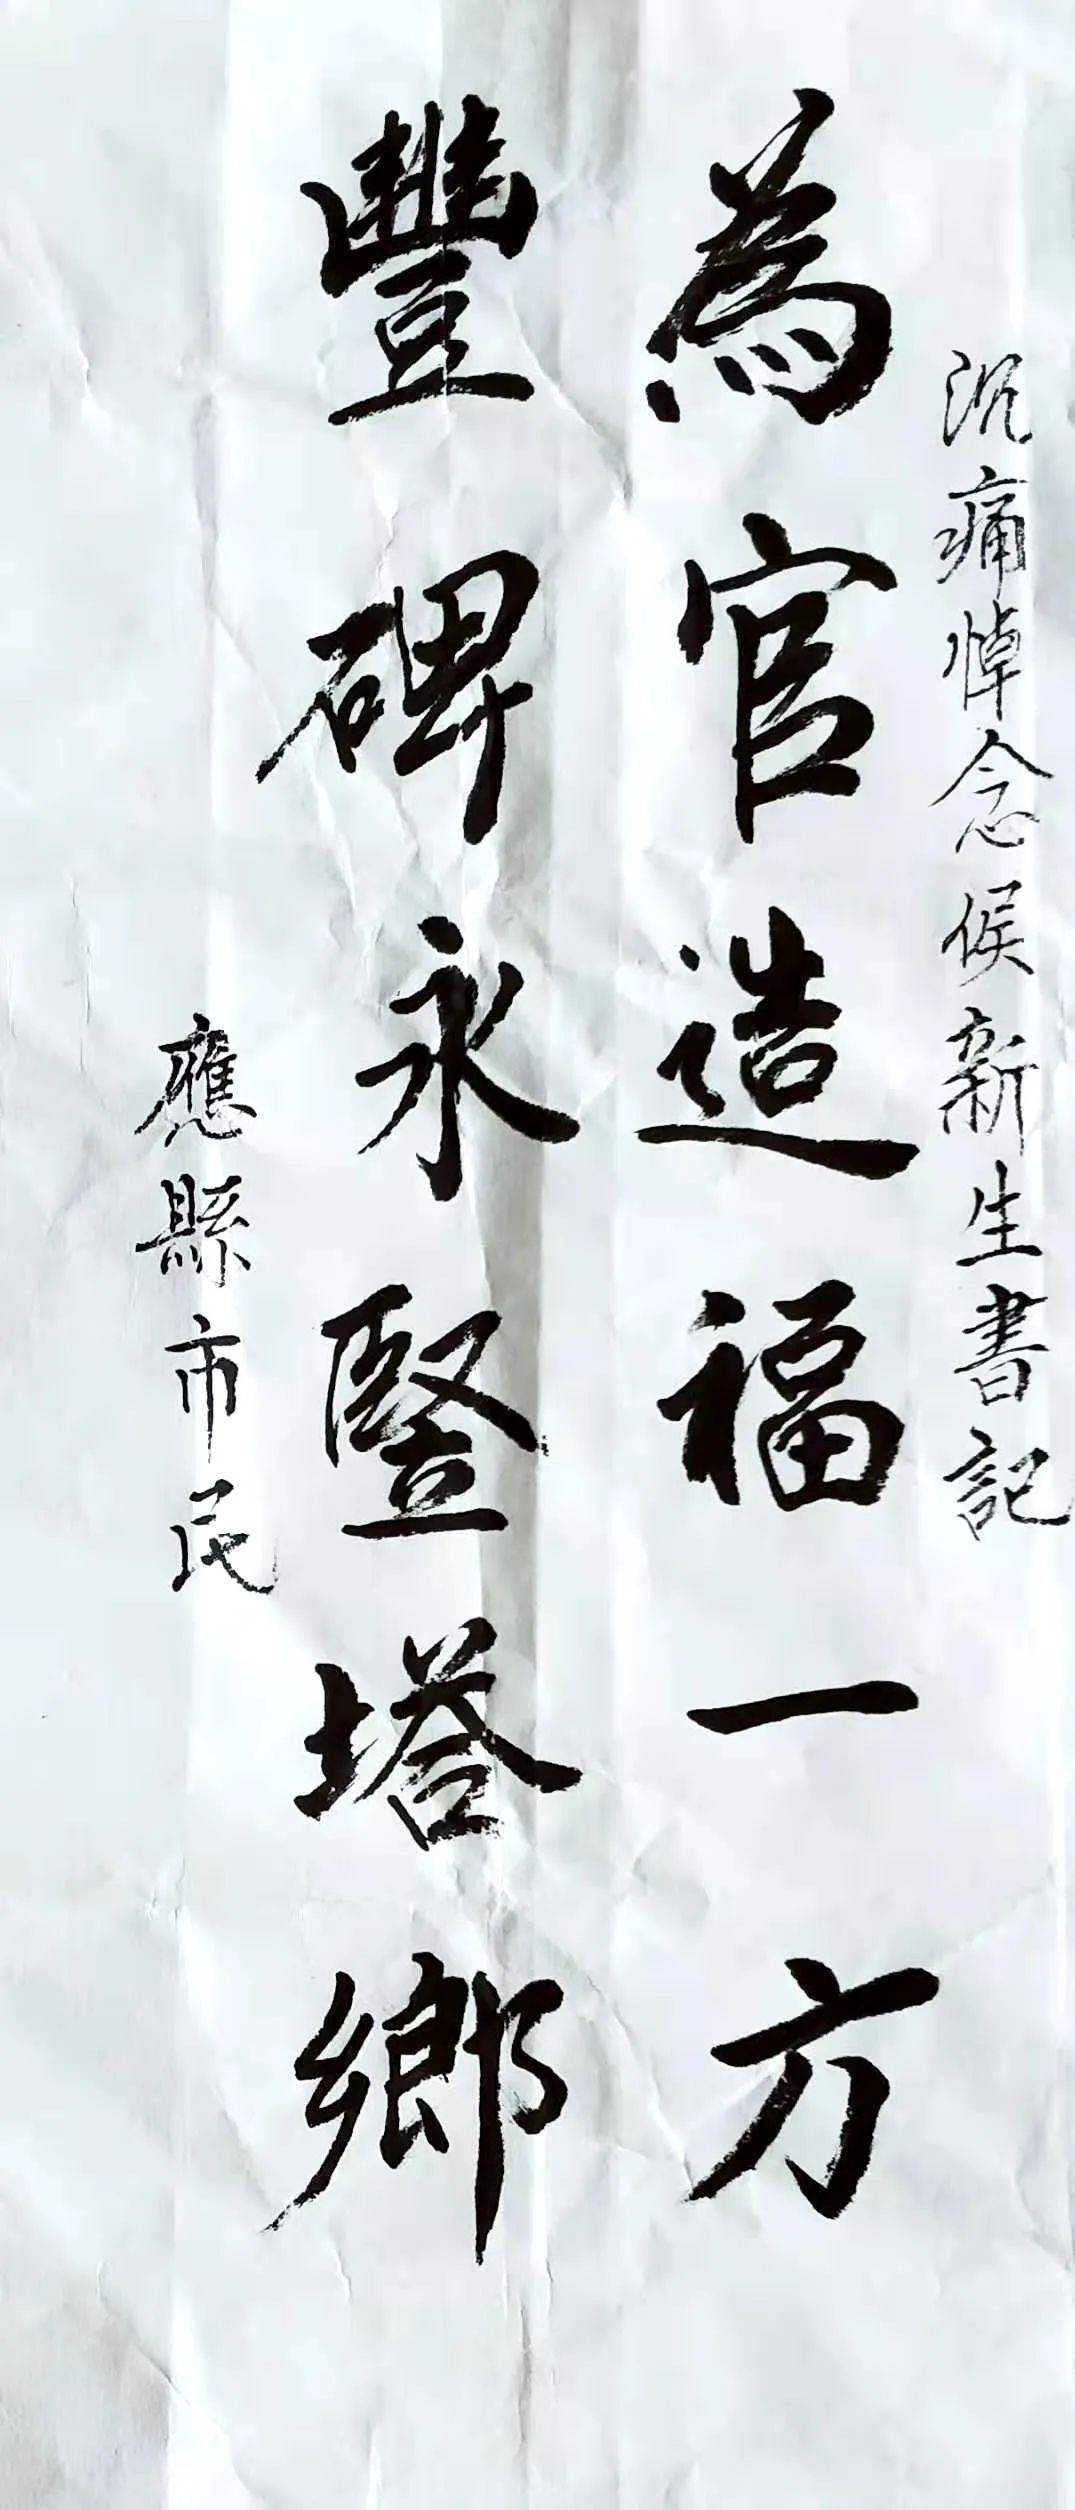 沉痛悼念候新生書記
為官造福一方
豐碑永豎塔鄉
應縣市民